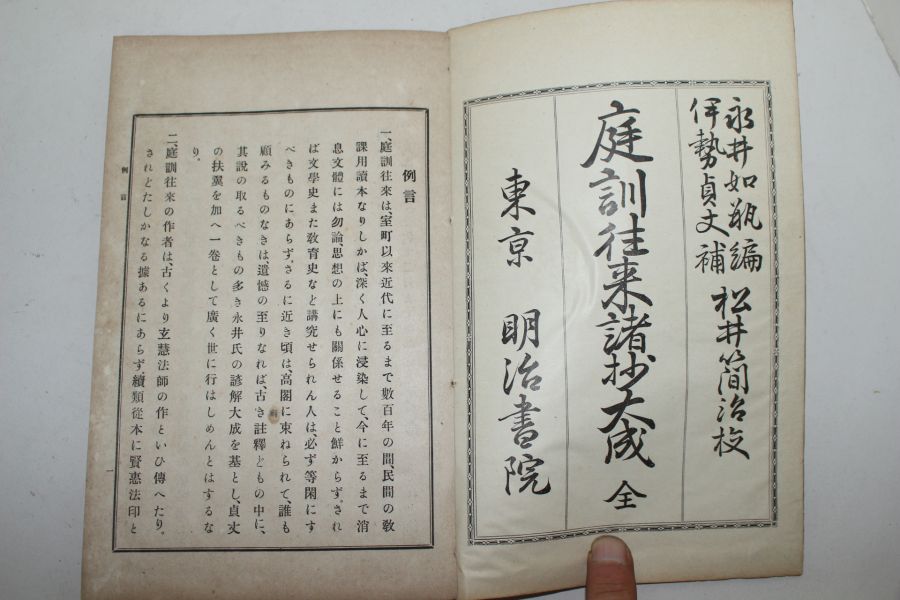 永井如瓶編
伊勢貞丈補
松井簡治校
庭訓往来諸抄大成 全
東京 明治書院
例言
一、庭訓往来は、室町以来近代に至るまで數百年の間、民間の敎
課用讀本なりしかば、深く人心に浸染して、今に至るまで消
息文體には勿論、思想の上にも關係せること鮮からず。され
ば文學史また敎育史など講究せられん人は、必ず等閑にす
べきものにあらず。さるに近き頃は、高閣に束ねられて、誰も
顧みるものなきは、遺憾の至りなれば、古き註釋どもの中に、
其説の取るべきもの多き永井氏の諺解大成を基とし、貞丈
の扶翼を加へ一卷として廣く世に行はしめんとはするな
り。
二、庭訓往来の作者は、古くより玄慧法師の作といひ傳へたり。
されどたしかなる據あるにあらず。續類從本に賢惠法印と
例言
一